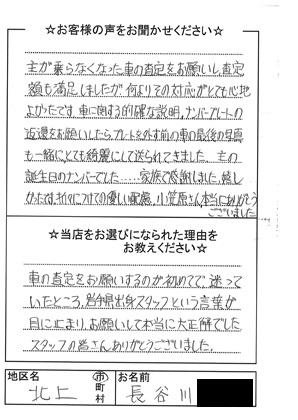 ☆お客様の声をお聞かせください☆
主が乗らなくなった車の査定をお願いし、査定
額も満足しましたが、何よりその対応がとても心地
よかったです。車に関する的確な説明、ナンバープレートの
返還をお願いしたら、プレートを外す前の車の最後の写真
も一緒にとても綺麗にして送られてきました。主の
誕生日のナンバーでした……家族で感謝しました。嬉し
かったです。折々につけての優しい配慮、小笠原さん、本当にありがとう
ございました。
☆当店をお選びになられた理由を
お教えください☆
車の査定をお願いするのが初めてで、迷って
いたところ、岩手県出身スタッフという言葉が
目に止まり、お願いして本当に大正解でした。
スタッフの皆さんありがとうございました。
地区名 北上 市町村 お名前 長谷川